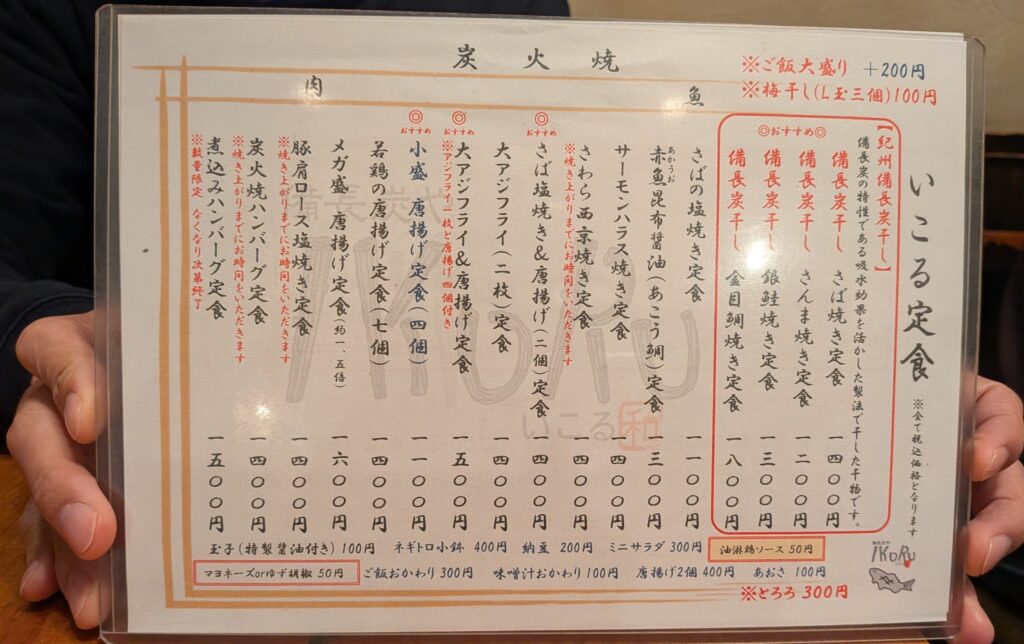 炭火焼
※ご飯大盛り +200円
※梅干し(L玉三個)100円
肉
魚
いこる定食
※全て税込価格となります
【紀州備長炭干し】
備長炭の特性である吸水効果を活かした製法で干した干物です。
◎おすすめ◎
備長炭干し さば焼き定食 一四〇〇円
備長炭干し さんま焼き定食 一二〇〇円
備長炭干し 銀鮭焼き定食 一三〇〇円
備長炭干し 金目鯛焼き定食 一八〇〇円
さばの塩焼き定食 一一〇〇円
あかうお
赤魚昆布醤油(あこう鯛)定食 一三〇〇円
サーモンハラス焼き定食 一四〇〇円
さわら西京焼き定食 一四〇〇円
※焼き上がりまでにお時間をいただきます
◎
おすすめ
さば塩焼き&唐揚げ(二個)定食 一四〇〇円
大アジフライ(二枚)定食 一四〇〇円
◎
おすすめ
大アジフライ&唐揚げ定食 一五〇〇円
※アジフライ一枚と唐揚げ四個付き
◎
おすすめ
小盛 唐揚げ定食(四個) 一一〇〇円
若鶏の唐揚げ定食(七個) 一四〇〇円
メガ盛 唐揚げ定食(約一、五倍) 一六〇〇円
豚肩ロース塩焼き定食 一四〇〇円
※焼き上がりまでにお時間をいただきます
炭火焼ハンバーグ定食 一四〇〇円
※焼き上がりまでにお時間をいただきます
煮込みハンバーグ定食 一五〇〇円
※数量限定 なくなり次第終了
備長炭火
IKORU
いこる 和
玉子(特製醤油付き) 100円 ネギトロ小鉢 400円 納豆 200円 ミニサラダ 300円 油淋鶏ソース 50円
マヨネーズorゆず胡椒 50円 ご飯おかわり 300円 味噌汁おかわり 100円 唐揚げ2個 400円 あおさ 100円
※とろろ 300円
IKORU